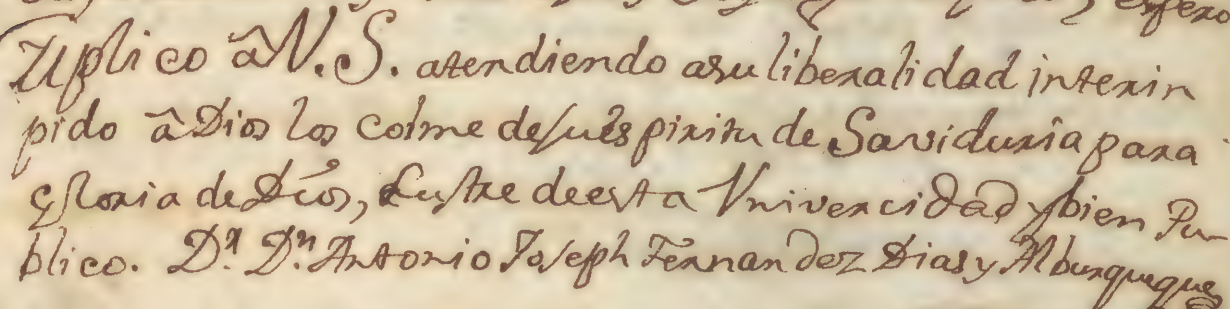 espero
suplico â V.S. atendiendo asu liberalidad interin
pido â Dios los colme desu Espiritu de Saviduria para
gloria de Dios, Lustre deesta Vnivercidad y bien Pu-
blico. Dr. Dn. Antonio Joseph Fernandez Dias y Alburqueque